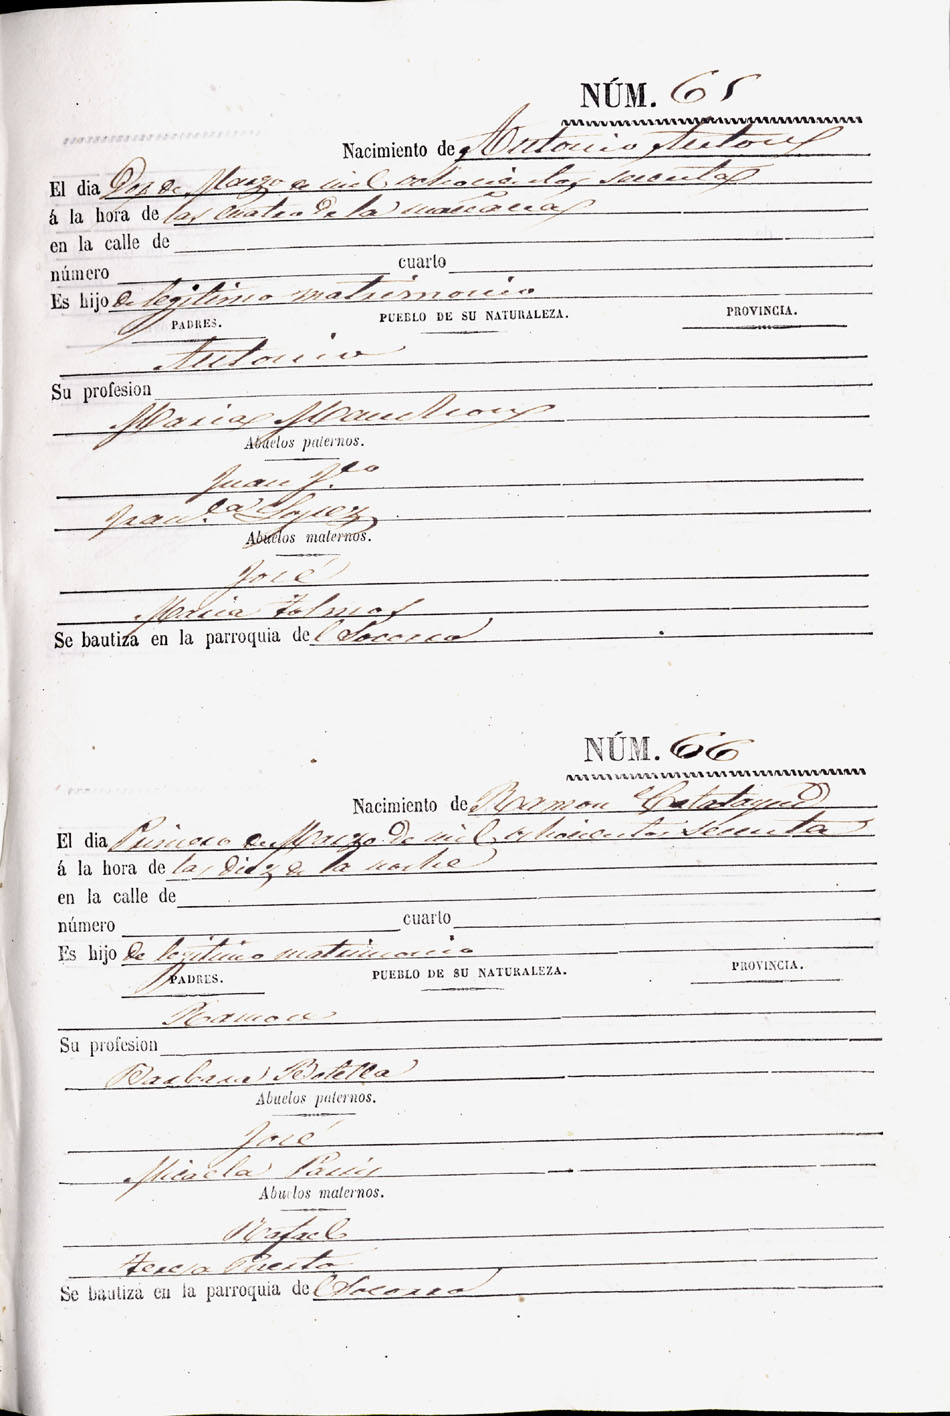 NÚM. 65
Nacimiento de Antonio Anton
El dia Dos de Marzo de mil ochocientos sesenta
á la hora de las cuatro de la mañana
en la calle de
número cuarto
Es hijo de legitimo matrimonio
PADRES. PUEBLO DE SU NATURALEZA. PROVINCIA.
Antonio
Su profesion
Maria Manchon
Abuelos paternos.
Juan J.co
Fran.ca Lopez
Abuelos maternos.
José
Maria
Se bautiza en la parroquia del Socorro
NÚM. 66
Nacimiento de Ramon Calatayud
El dia Primero de Marzo de mil ochocientos sesenta
á la hora de las diez de la noche
en la calle de
número cuarto
Es hijo de legitimo matrimonio
PADRES. PUEBLO DE SU NATURALEZA. PROVINCIA.
Ramon
Su profesion
Barbara Botella
Abuelos paternos.
José
Micaela
Abuelos maternos.
Rafael
Teresa Puerto
Se bautiza en la parroquia del Socorro